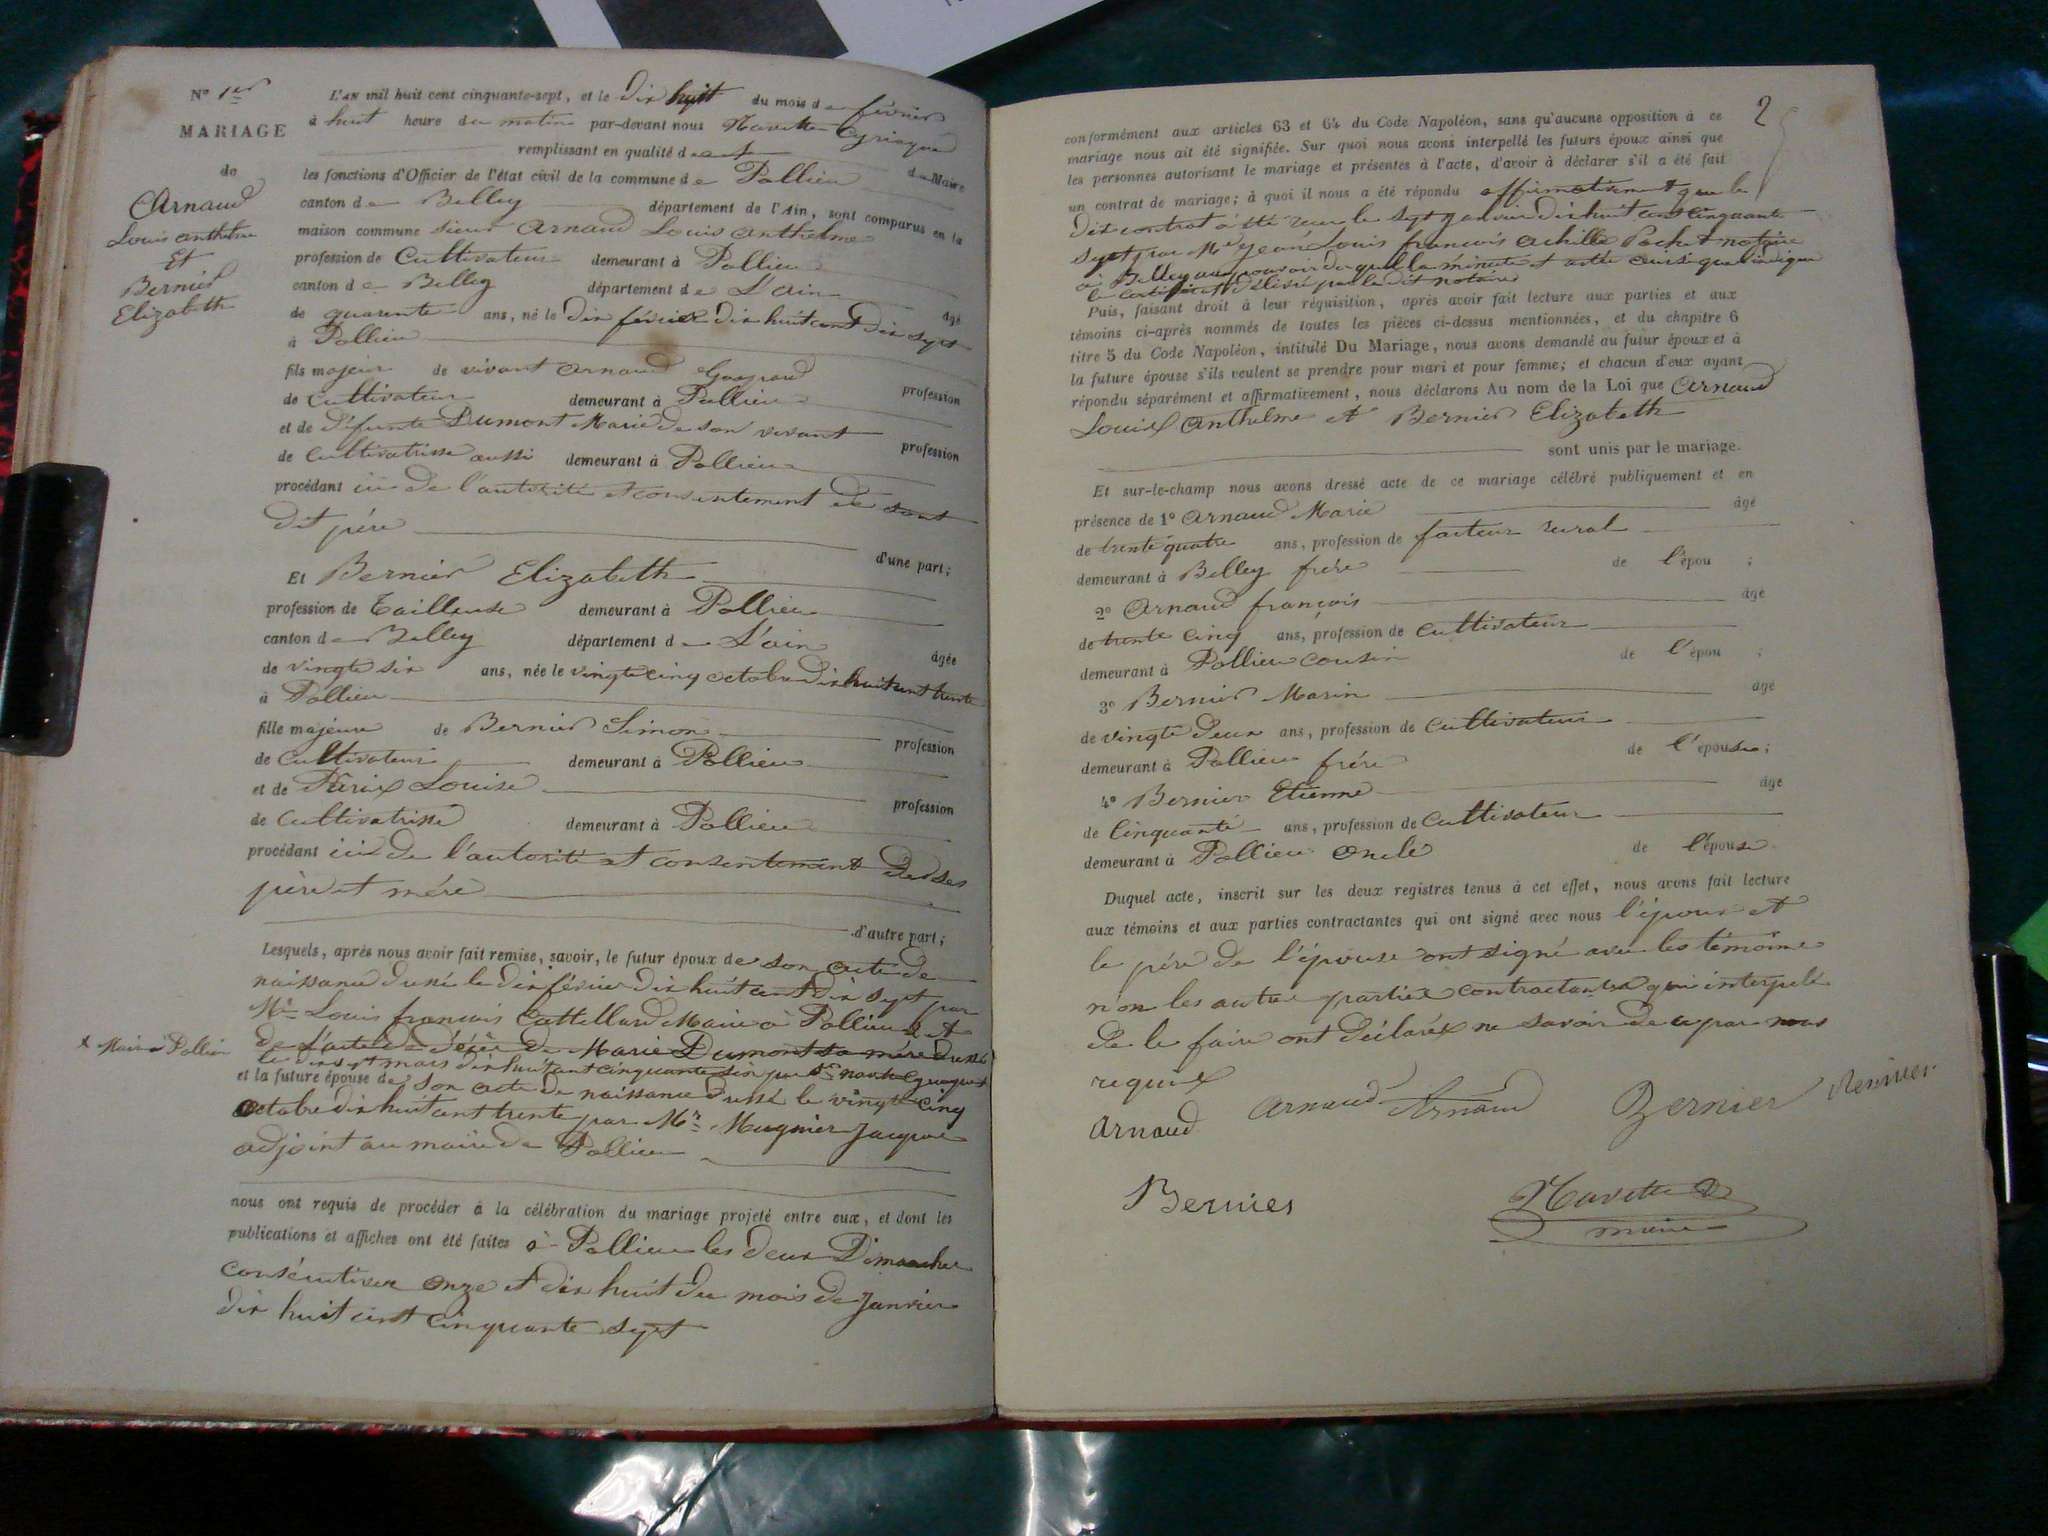 No 1er
MARIAGE
de
Arnaud
Louis anthelme
Et
Bernier
Elizabeth
L'AN mil huit cent cinquante-sept, et le dix huit du mois de février
à huit heure du matin par-devant nous Navette Cyriaque
remplissant en qualité de Maire
les fonctions d'Officier de l'état civil de la commune de Pollieu
canton de Belley département de l'Ain, sont comparus en la
maison commune sieur Arnaud Louis Anthelme
profession de Cultivateur demeurant à Pollieu
canton de Belley département de L'ain âgé
de quarente ans, né le dix février dix huit cent dix sept
à Pollieu
fils majeur de vivant Arnaud Gaspard profession
de Cultivateur demeurant à Pollieu
et de défunte Dumont Marie de son vivant profession
de Cultivatrisse aussi demeurant à Pollieu
procédant ici de l'autorité et consentement de sont
dit père
d'une part;
Et Bernier Elizabeth
profession de Tailleuse demeurant à Pollieu
canton de Belley département de L'ain âgée
de vingte six ans, née le vingte cinq octobre dix huit cent trente
à Pollieu
fille majeure de Bernier Simon profession
de Cultivateur demeurant à Pollieu
et de Louise profession
de Cultivatrisse demeurant à Pollieu
procédant ici de l'autorité et consentement de ses
père et mère
d'autre part;
Lesquels, après nous avoir fait remise, savoir, le futur époux de son acte de
naissance dressé le dix février dix huit cent dix sept par
Mr Louis françois Cattelland Maire à Pollieu et
de l'acte de décès de Marie Dumont sa mère dressé
le dix sept mars dix huit cent cinquante six par Sr navette cyriaque
x Maire à Pollieu
et la future épouse de son acte de naissance dressé le vingte cinq
octobre dix huit cent trente par Mr Mugnier Jacques
adjoint au maire de Pollieu
nous ont requis de procéder à la célébration du mariage projeté entre eux, et dont les
publications et affiches ont été faites à Pollieu les deux Dimanches
consécutives onze et dix huit du mois de Janvier
dix huit cent cinquante sept
2
conformément aux articles 63 et 64 du Code Napoléon, sans qu'aucune opposition à ce
mariage nous ait été signifiée. Sur quoi nous avons interpellé les futurs époux ainsi que
les personnes autorisant le mariage et présentes à l'acte, d'avoir à déclarer s'il a été fait
un contrat de mariage; à quoi il nous a été répondu affirmativement que le
dit contrat à été recu le sept janvier dix huit cent cinquante
sept par Me Jean Louis françois achille Pochet notaire
à Belley au pouvoir duquel la minute et ainsi que l'indique
le certificat délivré par le dit notaire
Puis, faisant droit à leur réquisition, après avoir fait lecture aux parties et aux
témoins ci-après nommés de toutes les pièces ci-dessus mentionnées, et du chapitre 6
titre 5 du Code Napoléon, intitulé Du Mariage, nous avons demandé au futur époux et à
la future épouse s'ils veulent se prendre pour mari et pour femme; et chacun d'eux ayant
répondu séparément et affirmativement, nous déclarons Au nom de la Loi que Arnaud
Louis Anthelme et Bernier Elizabeth
sont unis par le mariage.
Et sur-le-champ nous avons dressé acte de ce mariage célébré publiquement et en
présence de 1o Arnaud Marie âgé
de trente quatre ans, profession de facteur rural
demeurant à Belley frére de l'épou ;
2o Arnaud françois âgé
de trente cinq ans, profession de Cultivateur
demeurant à Pollieu cousin de l'épou ;
3o Bernier Marin âgé
de vingte deux ans, profession de Cultivateur
demeurant à Pollieu frére de l'épouse;
4o Bernier Etienne âgé
de Cinquante ans, profession de Cultivateur
demeurant à Pollieu oncle de l'épouse
Duquel acte, inscrit sur les deux registres tenus à cet effet, nous avons fait lecture
aux témoins et aux parties contractantes qui ont signé avec nous l'époux et
le père de l'épouse ont signé avec les témoins
non les autre parties contractantes qui interpelé
de le faire ont déclarés ne savoir de ce par nous
requis
Arnaud Arnaud Arnaud Bernier Bernier
Bernier
Navette
maire